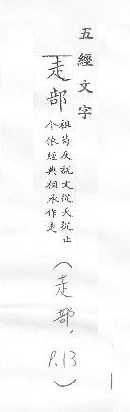 五經文字
走部
祖苟反說文從夭從止
今依經典相承作走
(走部, P.13)